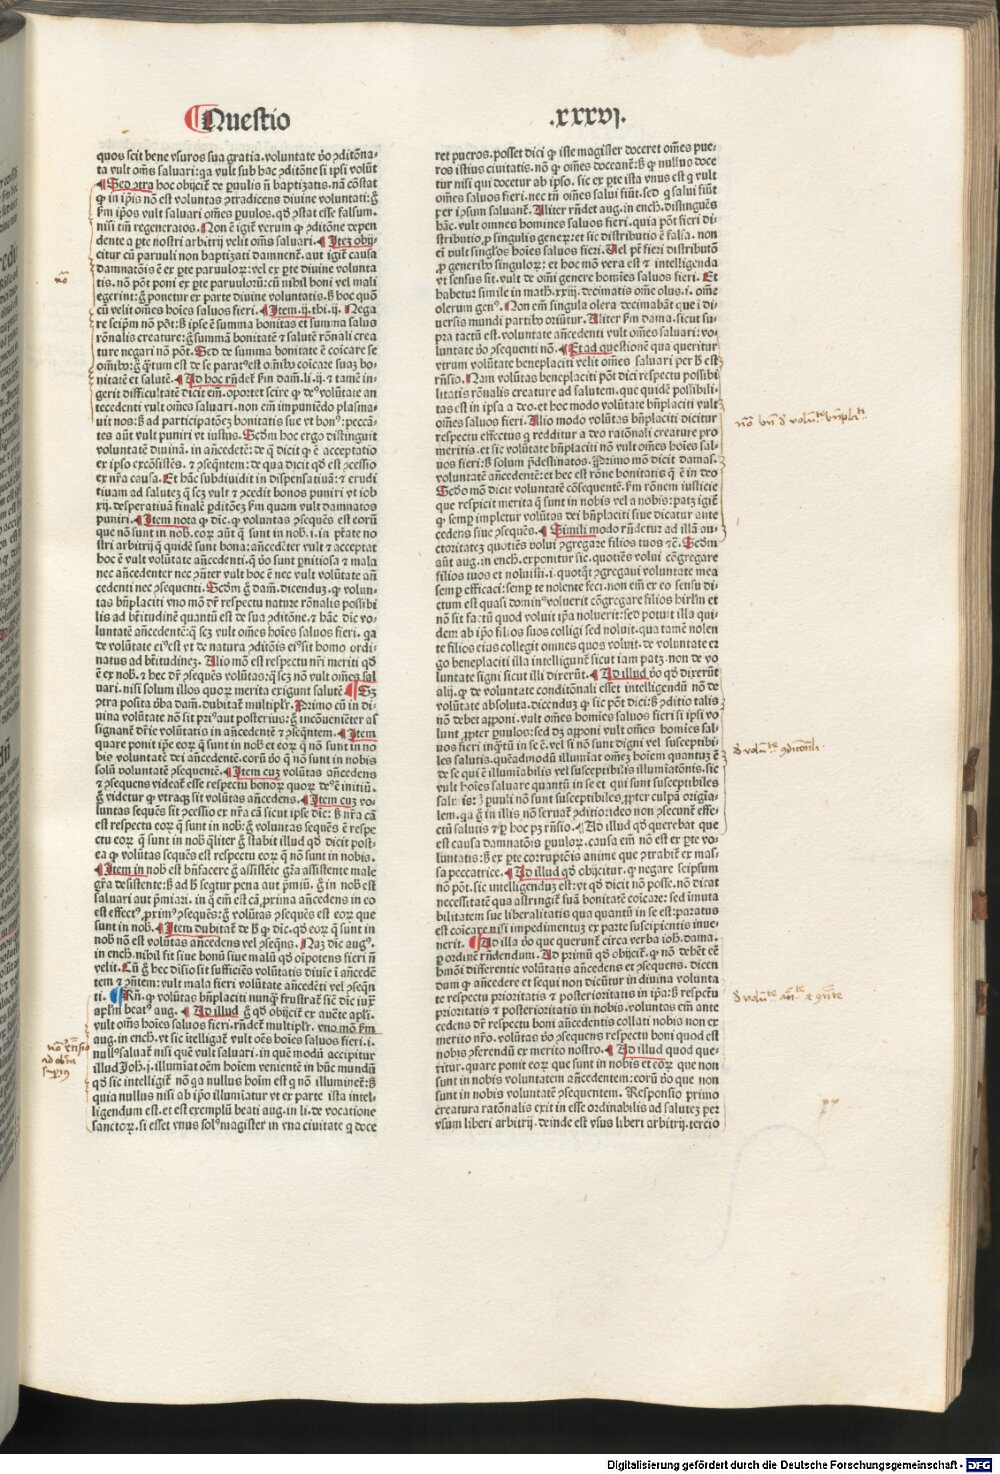 Questio
.xxxvj.
quos scit bene vsuros sua gratia. voluntate v̄o ꝯditōna-
ta vult om̄s saluari: q̄a vult sub hac ꝯditōne si ipsi volūt
Sed ꝯtra hoc obijcit̄ de puulis n̄ baptizatis. nā cōstat
nisi tm̄ regeneratos. Non ē igit̄ verum ꝙ ꝯditōne depen
dente a ꝑte nostri arbitrij velit om̄s saluari. Itez obij-
citur cū paruuli non baptizati damnent̄. aut igit̄ causa
damnatōis ē ex ꝑte paruuloꝝ: vel ex ꝑte diuine volunta
tis. nō pōt poni ex ꝑte paruuloꝝ: cū nihil boni vel mali
egerint: ḡ ponetur ex parte diuine voluntatis. Sꝫ hoc quō
cū velit om̄es hoīes saluos fieri. Item .ij. thi. ij. Nega
re seip̄m nō pōt: sꝫ ipse ē summa bonitas et summa salus
rōnalis creature: ḡ summā bonitatē ⁊ salutē rōnali crea
ture negari nō pōt. Sed de summa bonitate ē cōicare se
nitatē et salutē. Ad hoc rn̄det ẜm dam. li. ij. ⁊ tamē in-
gerit difficultatē dicit em̄. oportet scire ꝙ de' volūtate an
tecedenti vult om̄es saluari. non em̄ impuniēdo plasma-
tes aūt vult puniri vt iustus. Scd̄m hoc ergo distinguit
voluntatē diuinā. in añcedētē: de q̄ dicit ꝙ ē acceptatio
ex nr̄a causa. Et hāc subdiuidit in dispensatiuā: ⁊ erudi
tiuam ad salutez q̄ scꝫ vult ⁊ ꝯcedit bonos puniri vt iob
puniri. Item nota ꝙ dic. ꝙ voluntas ꝯsequēs est eorū
que nō sunt in nob. eoꝝ aūt q̄ sunt in nob. i. in ptāte no
stri arbitrij q̄ quidē sunt bona: añcedēter vult ⁊ acceptat
hoc ē vult volūtate añcedenti. q̄ v̄o sunt ꝑnitiosa ⁊ mala
nec añcedenter nec ꝯn̄ter vult hoc ē nec vult volūtate añ
cedenti nec ꝯsequenti. Scd̄m ḡ dam. dicenduꝫ ꝙ volun-
tas bn̄placiti vno mō dr̄ respectu nature rōnalis possibi
lis ad btitudinē quantū est de sua ꝯditōne. ⁊ hāc dic vo-
luntatē añcedentē: q̄ scꝫ vult om̄es hoīes saluos fieri. q̄a
uari. nisi solum illos quoꝝ merita exigunt salutē Sꝫ
ꝯtra posita v̄ba dam. dubitat̄ multiplr̄. Primo cū in di-
uina volūtate nō sit pri' aut posterius: ḡ incōueniēter as
signant̄ dr̄ie volūtatis in añcedentē ⁊ ꝯseq̄ntem. Item
quare ponit ip̄e eoꝝ q̄ sunt in nob et eoꝝ q̄ nō sunt in no
bis voluntatē dei añcedentē. eorū v̄o q̄ nō sunt in nobis
solū voluntatē ꝯsequentē. Item cuꝫ volūtas añcedens
⁊ ꝯsequens videat̄ esse respectu bonoꝝ quoꝝ de' ē initiū.
ḡ videtur ꝙ vtraqꝫ sit volūtas añcedens. Item cuꝫ vo-
luntas sequēs sit ꝯcessio ex nr̄a cā sicut ipse dic: sꝫ nr̄a cā
est respectu eoꝝ q̄ sunt in nob: ḡ voluntas sequēs ē respe
ctu eoꝝ q̄ sunt in nob q̄liter ḡ stabit illud qd̄ dicit post-
ea ꝙ volūtas sequēs est respectu eoꝝ q̄ nō sunt in nobis.
Item in nob est bn̄facere ḡ assistēte gr̄a assistente male
gr̄a desistente: sꝫ ad h̄ seq̄tur pena aut p̄miū. ḡ in nob est
saluari aut p̄miari. in q̄ em̄ est cā prima añcedens in eo
est effect' primi' ꝯsequēs: ḡ volūtas ꝯsequēs est eoꝝ que
sunt in nob. Item dubitat̄ de h̄ ꝙ dic. qd̄ eoꝝ q̄ sunt in
nob nō est volūtas añcedens vel ꝯseq̄ns. Naꝫ dic aug'.
in ench. nihil fit siue bonū siue malū qd̄ oīpotens fieri n̄
velit. Cū ḡ hec diuisio sit sufficiēs volūtatis diuīe ī añcedē
tem ⁊ ꝯn̄tem: vult mala fieri volūtate añcedēti vel ꝯseq̄n
ti. Rn̄. ꝙ volūtas bn̄placiti nunq̄ frustrat̄ siē dic iuxꝭ
apl̄m beat' aug. Ad illud ḡ qd̄ obijcit̄ ex aucte apl̄i.
vult om̄s hoīes saluos fieri. rn̄det̄ multiplr̄. vno mō ẜm
aug. in ench. vt sic ītelligat̄ vult oēs hoīes saluos fieri. i.
null' saluat̄ nisi quē vult saluari. in quē modū accipitur
illud Joh. j. illumīat oēm hoīem venientē in hūc mundū
qd̄ sic intelligit̄ nō q̄a nullus hoīm est q̄ nō illuminet̄: sꝫ
quia nullus nisi ab ip̄o illumīatur vt ex parte ista intel-
ligendum est. et est exemplū beati aug. in li. de vocatione
sanctoꝝ. si esset vnus sol' magister in vna ciuitate q̄ doce
ret pueros. posset dici ꝙ iste magister doceret om̄es pue-
ros istius ciuitatis. nō ꝙ om̄es doceant̄: sꝫ ꝙ nullus doce
tur nisi qui docetur ab ipso. sic ex ꝑte ista vnus est q̄ vult
om̄es saluos fieri. nec tn̄ om̄es salui fiūt. sed q̄ salui fiūt
per ip̄sum saluant̄. Aliter rn̄det aug. in ench. distinguēs
hāc. vult omnes homines saluos fieri. quia pōt fieri di-
stributio ꝓ singulis generꝫ: et sic distributio ē falsa. non
em̄ vult singlōs hoīes saluos fieri. Vel pt̄ fieri distributō
ꝓ generibꝫ singuloꝝ: et hoc mō vera est ⁊ intelligenda
vt sensus sit. vult de om̄i genere homīes saluos fieri. Et
habetur simile in math. xxiij. decimatis om̄e olus. i. om̄e
olerum gen'. Non em̄ singula olera decimabāt que ī di-
uersis mundi partibꝫ oriūtur. Aliter ẜm dama. sicut su-
pra tactū est. voluntate añcedenti vult om̄es saluari: vo-
luntate v̄o ꝯsequenti nō. Et ad questionē qua queritur
vtrum volūtate beneplaciti velit om̄es saluari per h̄ est
rn̄sio. Nam volūtas beneplaciti pōt dici respectu possibi
litatis rōnalis creature ad salutem. que quidē possibili-
tas est in ipsa a deo. et hoc modo volūtate bn̄placiti vult
om̄es saluos fieri. Alio modo volūtas bn̄placiti dicitur
respectu effectus q̄ redditur a deo ratōnali creature pro
meritis. et sic volūtate bn̄placiti nō vult om̄es hoīes sal-
uos fieri: sꝫ solum p̄destinatos. Primo mō dicit damas.
voluntatē añcedentē: et hec est rōne bonitatis q̄ ē in deo
Scd̄o mō dicit voluntatē cōsequentē. ẜm rōnem iusticie
que respicit merita q̄ sunt in nobis vel a nobis: patꝫ igit̄
ꝙ semꝑ impletur volūtas dei bn̄placiti siue dicatur ante
cedens siue ꝯsequēs. Simili modo rn̄detur ad illā au-
ctoritateꝫ quotiēs volui ꝯgregare filios tuos ⁊c̄. Scd̄m
aūt aug. in ench. exponitur sic. quotiēs volui cōgregare
filios tuos et noluisti. i. quotq̄t ꝯgregaui voluntate mea
semꝑ efficaci: semꝑ te nolente feci. non em̄ ex eo sensu di-
ctum est quasi domin' voluerit cōgregare filios hirlm̄ et
nō sit factū quod voluit ipa noluerit: sed potuit illa qui-
dem ab ip̄o filios suos colligi sed noluit. qua tamē nolen
te filios eius collegit omnes quos voluit. de voluntate er
go beneplaciti illa intelligunt̄ sicut iam patꝫ. non de vo
luntate signi sicut illi dixerūt. Ad illud v̄o qd̄ dixerūt
alij. ꝙ de voluntate conditōnali esset intelligendū nō de
volūtate absoluta. dicenduꝫ ꝙ sic pōt dici: sꝫ ꝯditio talis
nō debet apponi. vult om̄es homīes saluos fieri si ipsi vo
lunt ꝓpter puulos: sed dꝫ apponi vult om̄es homīes sal-
uos fieri inq̄tū in se ē. vel si nō sunt digni vel susceptibi-
les salutis. quēadmodū illumīat om̄eꝫ hoīem quantuꝫ ē
de se qui ē illumīabilis vel susceptibilis illumīatōnis. sic
vult hoīes saluare quantū in se et qui sunt susceptibiles
salutis: sꝫ puuli nō sunt susceptibiles, ꝓpter culpā origīa-
lem. q̄a ḡ in illis nō seruat̄ ꝯditio: ideo non ꝯsecunt̄ effe-
ctū salutis ⁊ ꝑ hoc pꝫ rn̄sio. Ad illud qd̄ querebat̄ que
est causa damnatōis puuloꝝ. causa em̄ nō est ex ꝑte vo-
luntatis: sꝫ ex ꝑte corruptiōis anime que ꝯtrahit̄ ex mas-
sa peccatrice. Ad illud qd̄ obijcitur. ꝙ negare seipsum
nō pōt. sic intelligenduꝫ est: vt qd̄ dicit nō posse. nō dicat
necessitatē qua astringit̄ suā bonitatē cōicare: sed īmuta
bilitatem sue liberalitatis qua quantū in se est: paratus
est cōicare nisi impedimentuꝫ ex parte suscipientis inue-
nerit. Ad illa v̄o que querunt̄ circa verba ioh. dama.
ꝑ ordinē rn̄dendum. Ad primū qd̄ obijcit̄. ꝙ nō debēt eē
hmōi differentie volūtatis añcedens et ꝯsequens. dicen
dum ꝙ ancedere et sequi non dicūtur in diuina volunta
te respectu prioritatis ⁊ posterioritatis in ip̄a: sꝫ respc̄tu
prioritatis ⁊ posterioritatis in nobis. voluntas em̄ ante
cedens dr̄ respectu boni añcedentis collati nobis non ex
merito nr̄o. volūtas v̄o ꝯsequens respectu boni quod est
nobis ꝯferendū ex merito nostro. Ad illud quod que-
ritur. quare ponit eoꝝ que sunt in nobis et eoꝝ que non
sunt in nobis voluntatem añcedentem: eorū v̄o que non
sunt in nobis voluntatē ꝯsequentem. Responsio primo
creatura ratōnalis exit in esse ordinabilis ad salutez per
vsum liberi arbitrij. deinde est vsus liberi arbitrij. tercio
Digitalisierung gefördert durch die Deutsche Forschungsgemeinschaft - DFG